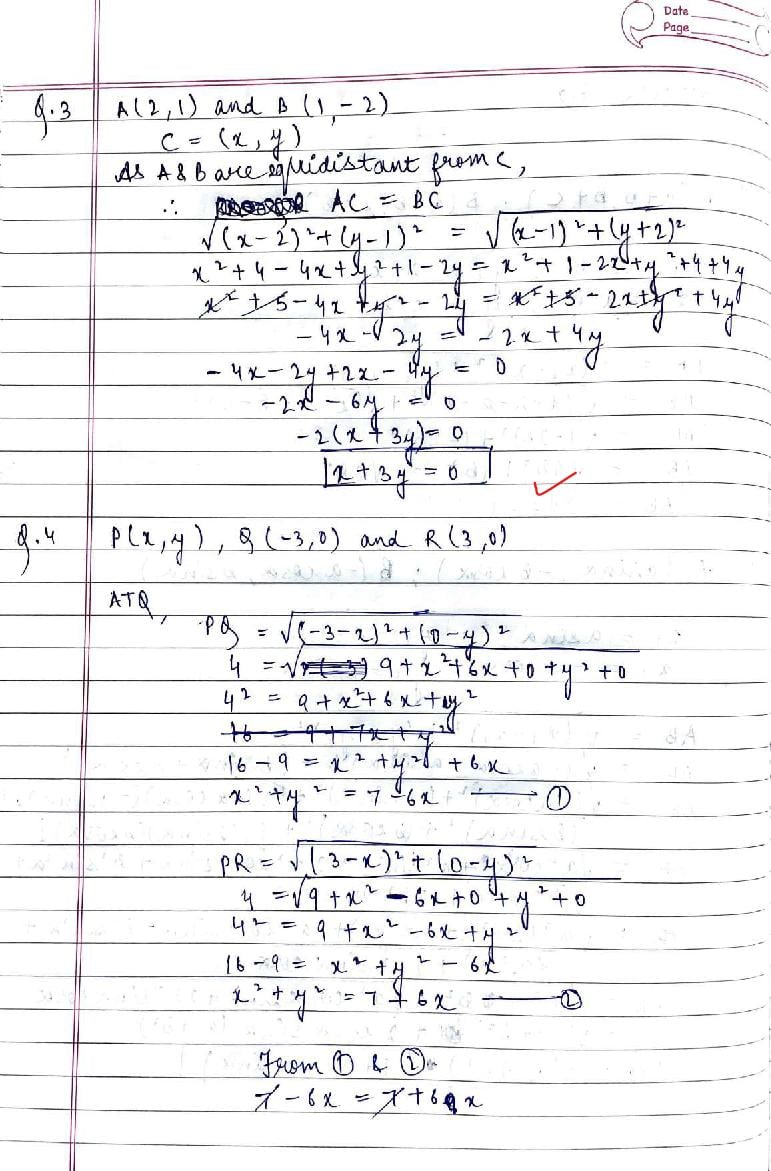 Date
Page
Q.3 A(2,1) and B (1,-2)
C = (x, y)
As A & B are equidistant from C,
∴ AC = BC
√(x-2)²+(y-1)² = √(x-1)²+(y+2)²
x²+4-4x+y²+1-2y = x²+1-2x+y²+4+4y
x²+5-4x+y²-2y = x²+5-2x+y²+4y
-4x-2y = -2x+4y
-4x-2y+2x-4y = 0
-2x-6y = 0
-2(x+3y)= 0
x+3y = 0
Q.4 P(x,y), Q(-3,0) and R(3,0)
ATQ,
PQ = √(-3-x)²+(0-y)²
4 = √9+x²+6x+0+y²+0
4² = 9+x²+6x+y²
16 = 9+7x+y²
16-9 = x²+y²+6x
x²+y² = 7-6x ①
PR = √(3-x)²+(0-y)²
4 = √9+x²-6x+0+y²+0
4² = 9+x²-6x+y²
16-9 = x²+y²-6x
x²+y² = 7+6x ②
From ① & ②
7-6x = 7+6x